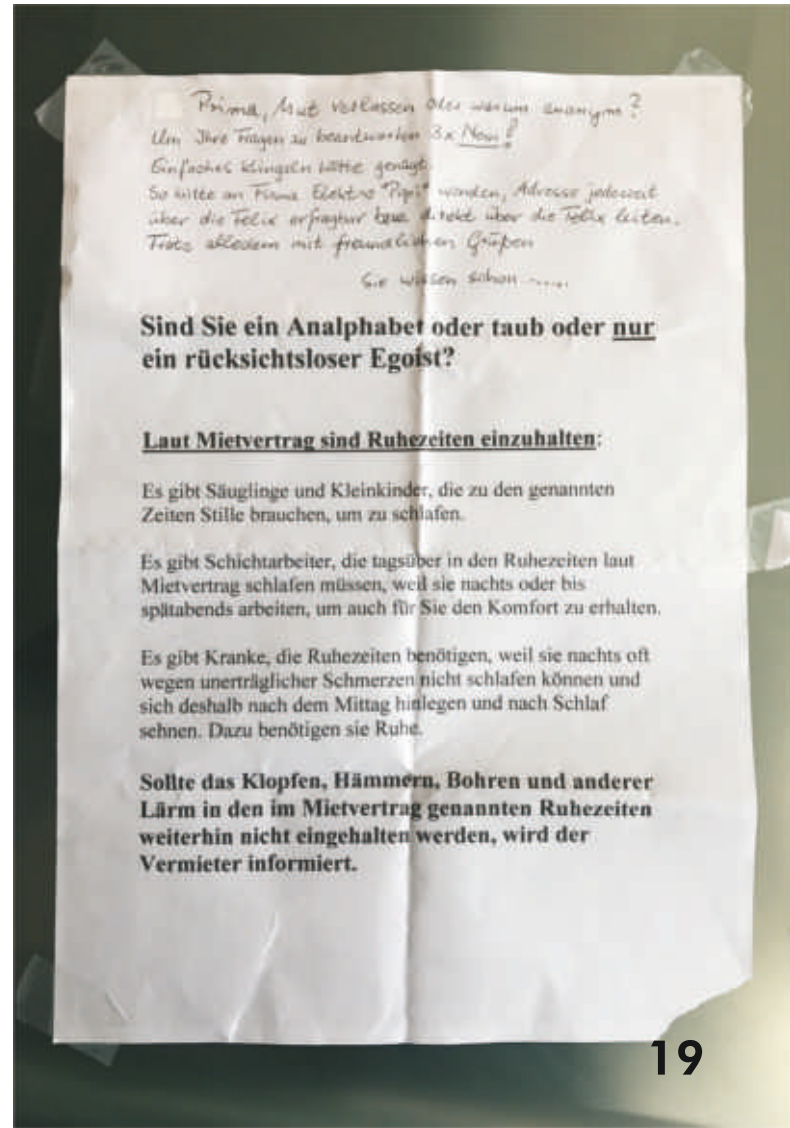 Prima, Mut verlassen oder warum anonym?
Um Ihre Fragen zu beantworten 3x Nein!
Einfaches klingeln hätte genügt.
So bitte an Firma Elektro "Pipri" wenden, Adresse jederzeit
über die Felix erfragbar bzw. direkt über die Felix leiten.
Trotz alledem mit freundlichen Grüßen
Sie wissen schon .....
Sind Sie ein Analphabet oder taub oder nur
ein rücksichtsloser Egoist?
Laut Mietvertrag sind Ruhezeiten einzuhalten:
Es gibt Säuglinge und Kleinkinder, die zu den genannten
Zeiten Stille brauchen, um zu schlafen.
Es gibt Schichtarbeiter, die tagsüber in den Ruhezeiten laut
Mietvertrag schlafen müssen, weil sie nachts oder bis
spätabends arbeiten, um auch für Sie den Komfort zu erhalten.
Es gibt Kranke, die Ruhezeiten benötigen, weil sie nachts oft
wegen unerträglicher Schmerzen nicht schlafen können und
sich deshalb nach dem Mittag hinlegen und nach Schlaf
sehnen. Dazu benötigen sie Ruhe.
Sollte das Klopfen, Hämmern, Bohren und anderer
Lärm in den im Mietvertrag genannten Ruhezeiten
weiterhin nicht eingehalten werden, wird der
Vermieter informiert.
19